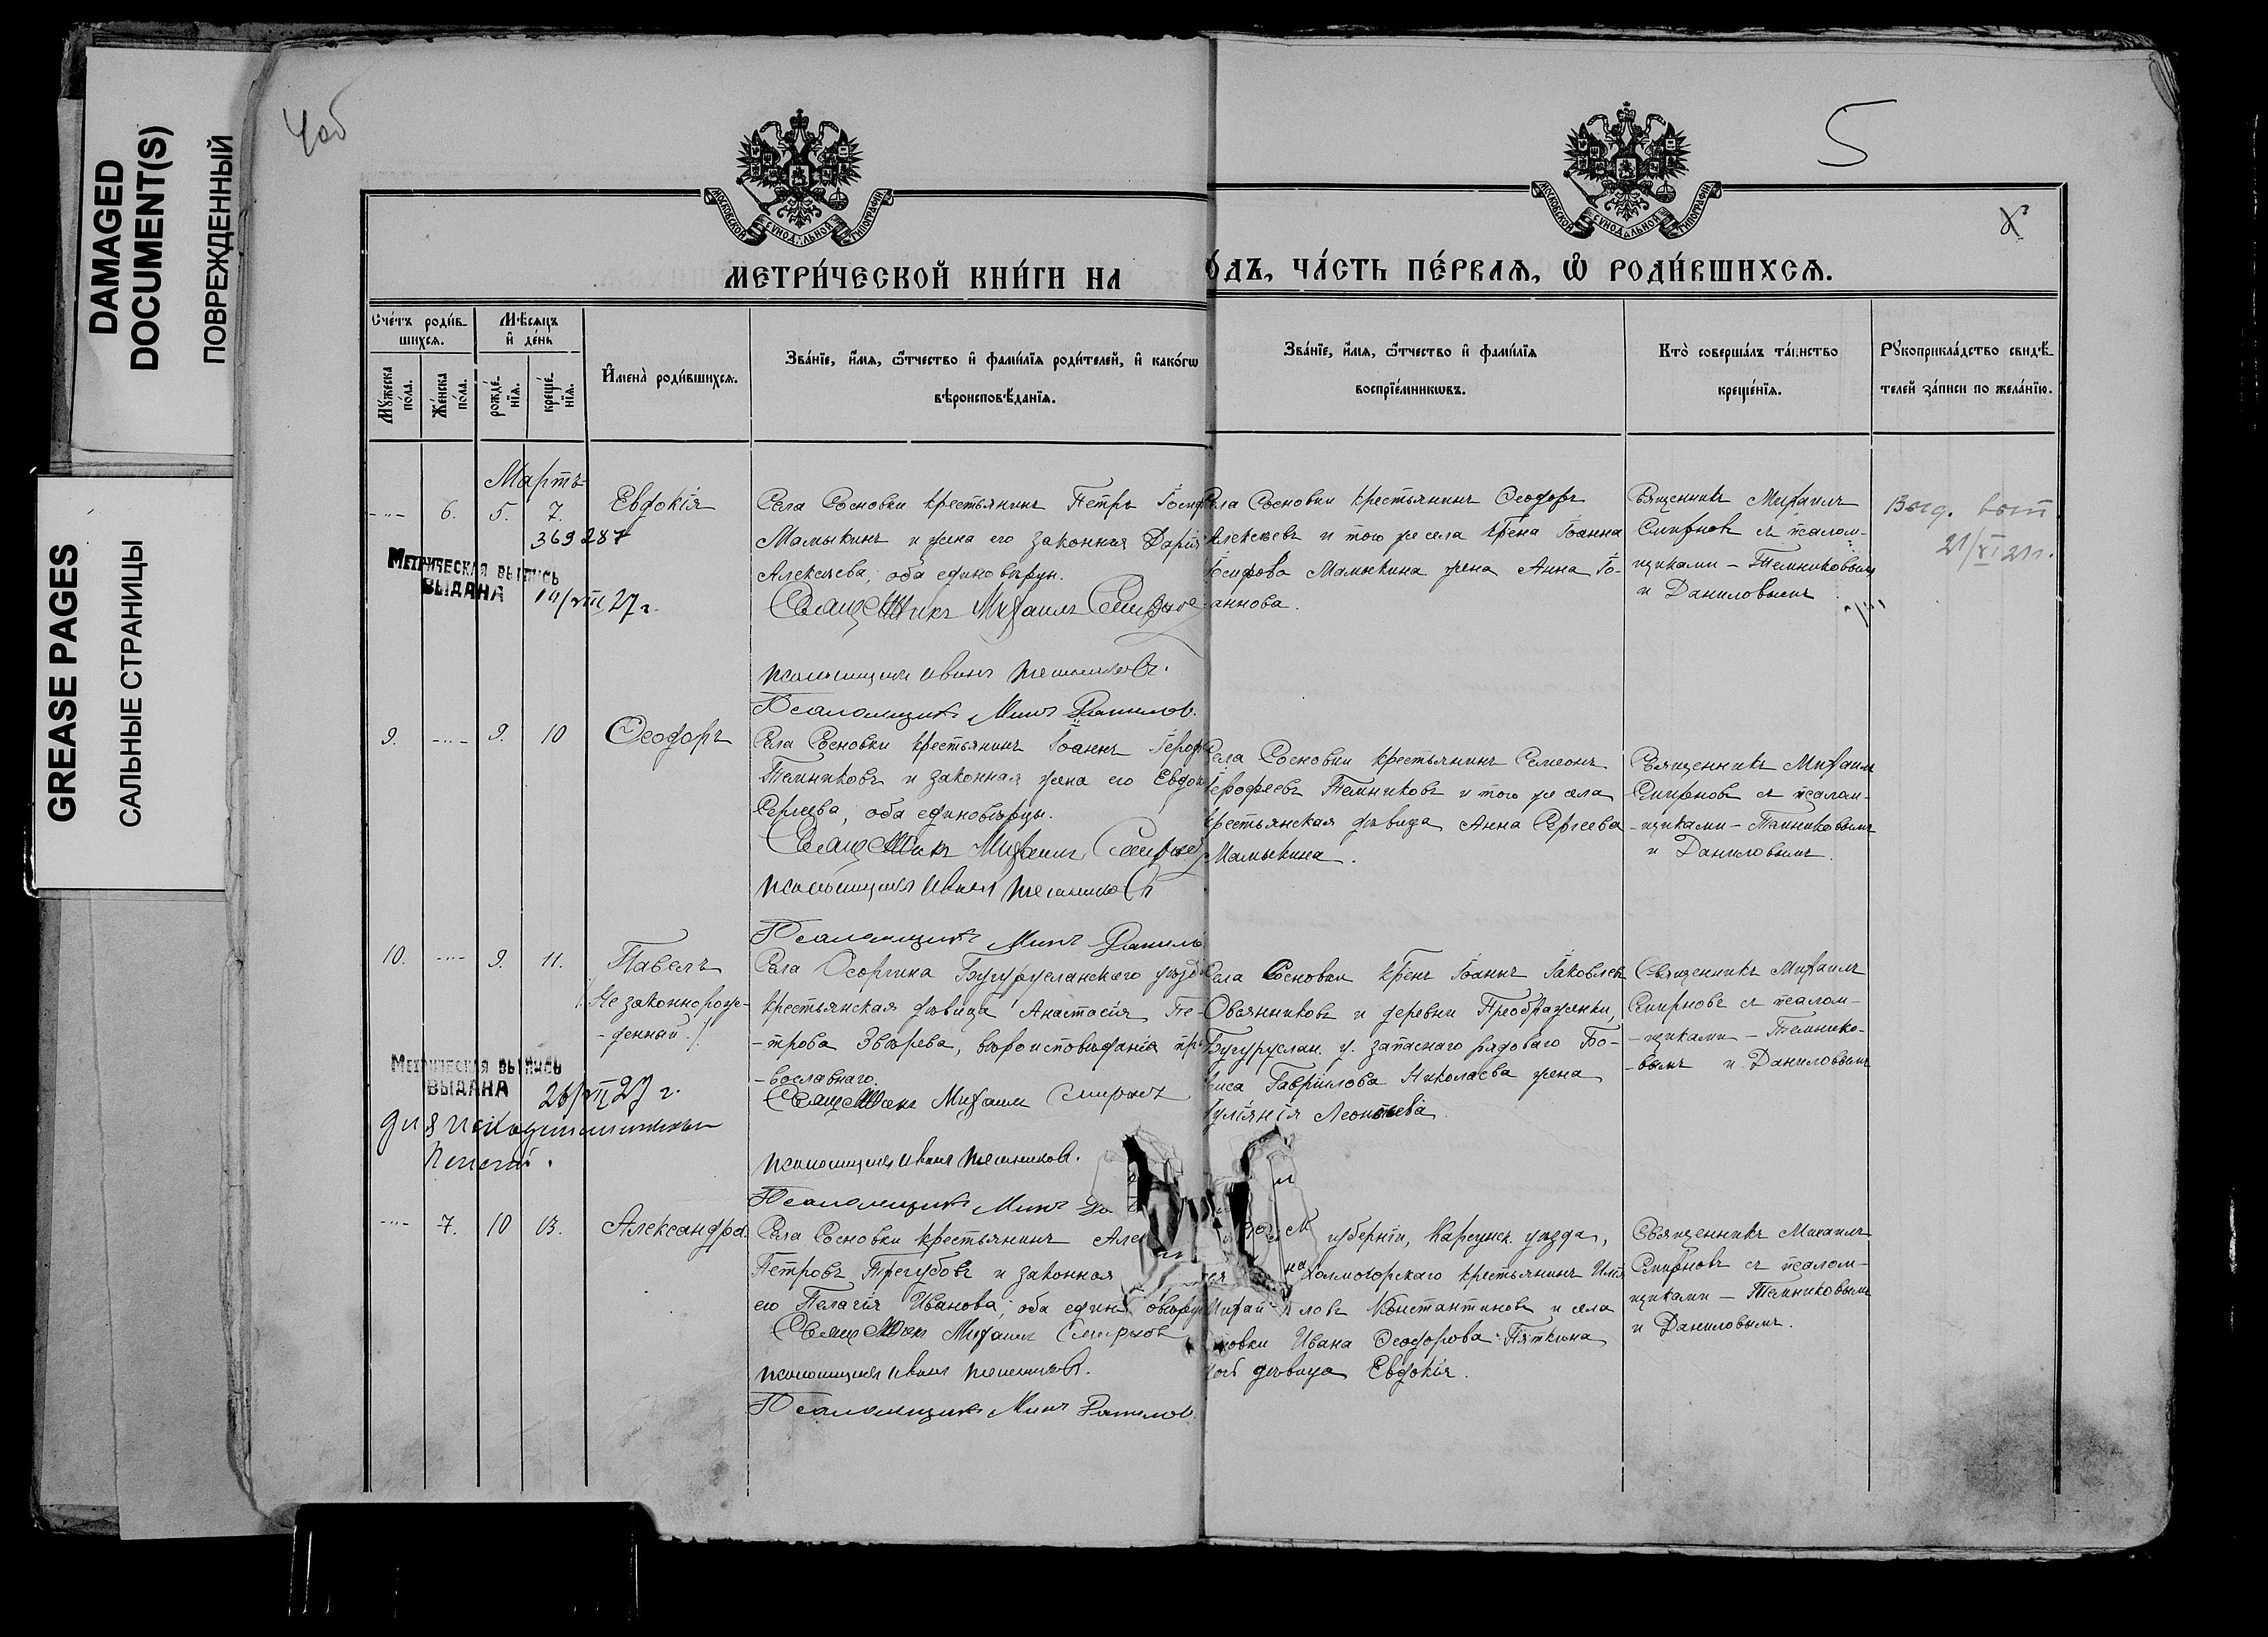 DAMAGED
DOCUMENT(S)
ПОВРЕЖДЕННЫЙ
GREASE PAGES
САЛЬНЫЕ СТРАНИЦЫ
5
МОСКОВСКОЙ СѴНОДАЛЬНОЙ ТИПОГРАФІИ
МОСКОВСКОЙ СѴНОДАЛЬНОЙ ТИПОГРАФІИ
МЕТРИ́ЧЕСКОЙ КНИ́ГИ НА
О́ДЪ, ЧА́СТЬ ПЕ́РВАѦ, Ѡ҆ РОДИ́ВШИХСѦ.
Сче́тъ роди́в-
шихсѧ.
Мѣ́сѧцъ
и҆ де́нь
Мꙋ́жеска
по́ла.
Же́нска
по́ла.
рожде́-
нїѧ.
креще́-
нїѧ.
И҆мена̀ роди́вшихсѧ.
Зва́нїе, и҆́мѧ, ѻ҆́тчество и҆ фами́лїѧ роди́телей, и҆ како́гѡ
вѣроисповѣ́данїѧ.
Зва́нїе, и҆́мѧ, ѻ҆́тчество и҆ фами́лїѧ
воспрїе́мникѡвъ.
Кто̀ соверша́лъ та́инство
креще́нїѧ.
Рꙋкоприкла́дство свидѣ́-
телей за́писи по жела́нїю.
Мартъ
-"- 6. 5. 7. Евдокія
369287
МЕТРИЧЕСКАЯ ВЫПИСЬ
ВЫДАНА 27 г.
Села Сосновки крестьянинъ Петръ Іосиф
Мамыкинъ и жена его законная Дарія
Алексѣева, оба единовѣрцы.
Священникъ Михаилъ Смирнов
псаломщикъ Иванъ Темниковъ.
Псаломщикъ Минъ Данилов.
Села Сосновки крестьянинъ Ѳеодоръ
Алексѣевъ и того же села кр̃на Іоанна
Іосифова Мамыкина жена Анна Іо-
аннова.
Священникъ Михаилъ
Смирновъ съ псалом-
щиками - Темниковымъ
и Даниловымъ
Выд. вып
21/XI 21г.
9. -"- 9. 10 Ѳеодоръ
Села Сосновки крестьянинъ Іоаннъ Іероф
Темниковъ и законная жена его Евдок
Сергѣева, оба единовѣрцы.
Священникъ Михаилъ Смирнов
псаломщикъ Иванъ Темниковъ
Псаломщикъ Минъ Данилов
Села Сосновки крестьянинъ Симеонъ
Іерофеевъ Темниковъ и того же села
крестьянская дѣвица Анна Сергѣева
Мамыкина.
Священникъ Михаилъ
Смирновъ съ псалом-
-щиками - Темниковымъ
и Даниловымъ.
10. -"- 9. 11. Павелъ
/Незаконнорож-
-денный./
МЕТРИЧЕСКАЯ ВЫПИСЬ
ВЫДАНА 27 г.
Села Осоргина Бугурусланского уѣзда
крестьянская дѣвица Анастасія Пе-
-трова Звѣрева, вѣроисповѣданія пра
-вославнаго.
Священник Михаилъ Смирновъ
псаломщикъ Иванъ Темниковъ.
Псаломщикъ Минъ Да
Села Сосновки кр̃нъ Іоаннъ Іаковлевъ
Овсянниковъ и деревни Преображенки,
Бугуруслан. у. запаснаго рядоваго Бо-
риса Гавріилова Николаева жена
Іуліанія Леонтьева.
Священникъ Михаилъ
Смирновъ съ псалом-
-щиками - Темнико-
-вымъ и Даниловымъ
-"- 7. 10 13. Александра.
Села Сосновки крестьянинъ Алек
Петровъ Трегубовъ и законная
его Пелагія Иванова, оба единовѣрцы
Священник Михаилъ Смирнов
псаломщикъ Иванъ Темниковъ.
Псаломщикъ Минъ Данилов.
уберніи, Карсунск. уѣзда,
Холмогорскаго крестьянинъ
Михайловъ Константиновъ и села
новки Ивана Ѳеодорова Пяткина
дочь дѣвица Евдокія.
Священникъ Михаилъ
Смирновъ съ псалом-
щиками - Темниковымъ
и Даниловымъ.